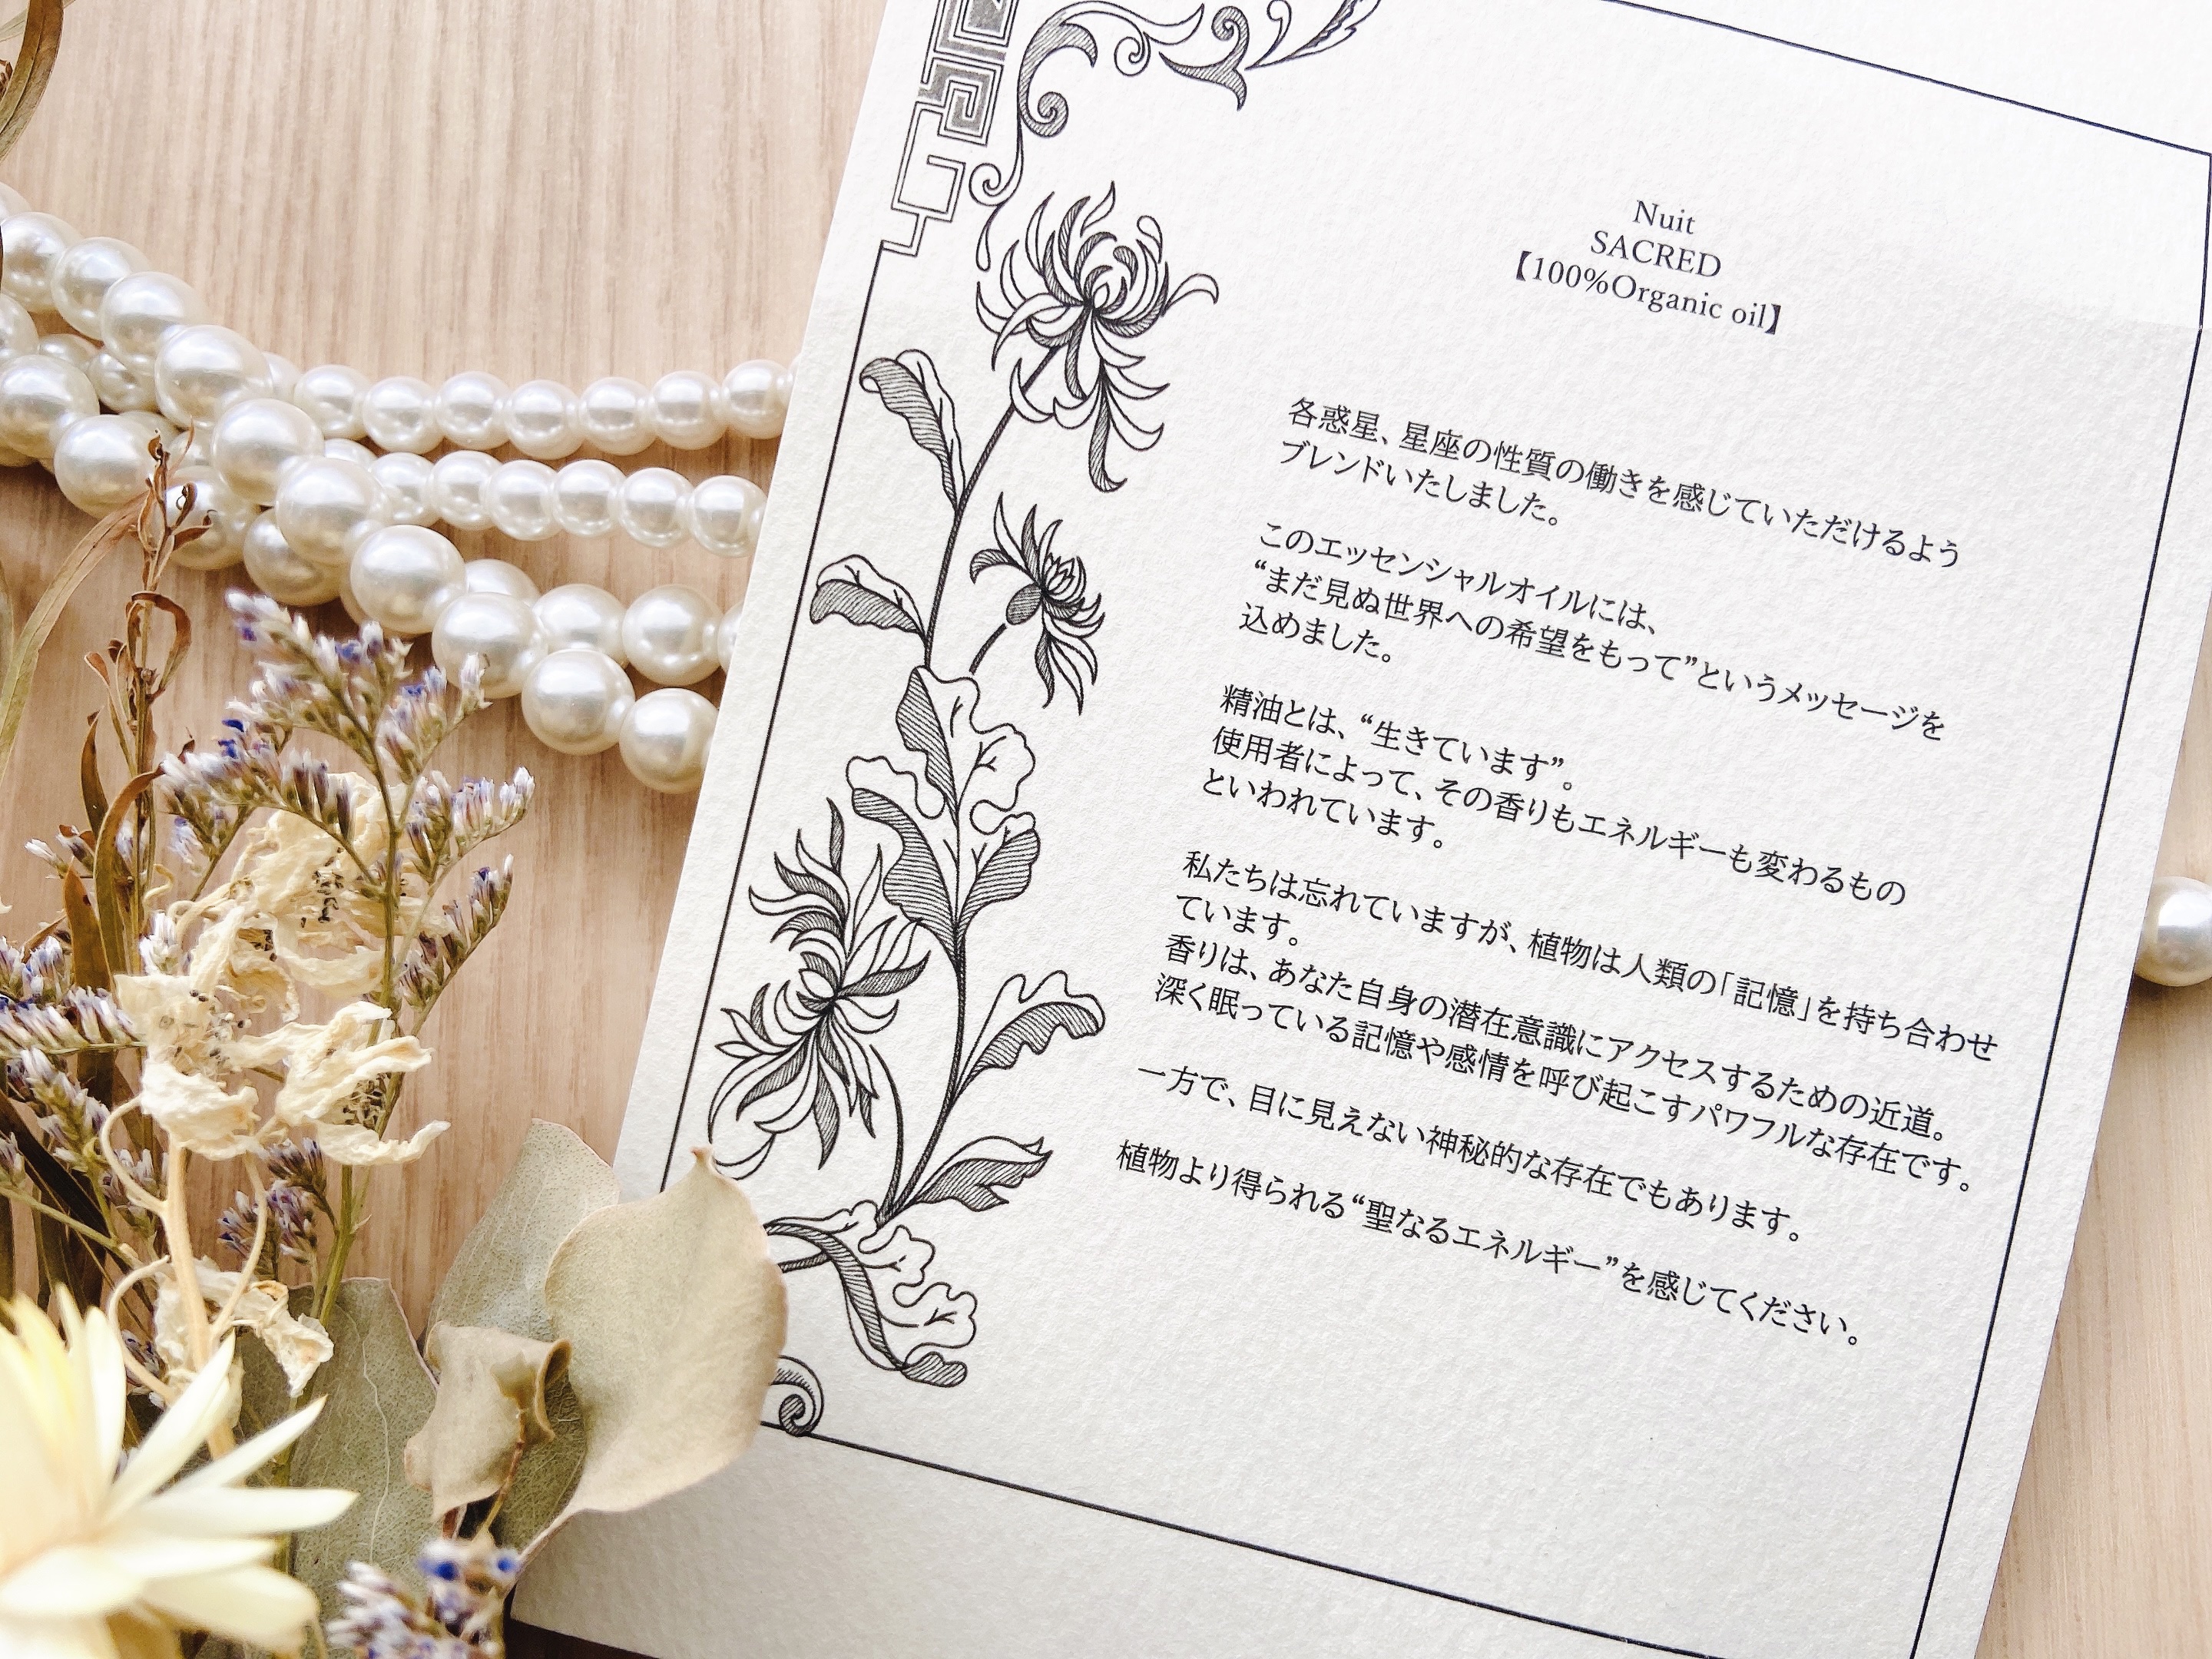 Nuit
SACRED
【100%Organic oil】
各惑星、星座の性質の働きを感じていただけるよう
ブレンドいたしました。
このエッセンシャルオイルには、
“まだ見ぬ世界への希望をもって”というメッセージを
込めました。
精油とは、“生きています”。
使用者によって、その香りもエネルギーも変わるもの
といわれています。
私たちは忘れていますが、植物は人類の「記憶」を持ち合わせ
ています。
香りは、あなた自身の潜在意識にアクセスするための近道。
深く眠っている記憶や感情を呼び起こすパワフルな存在です。
一方で、目に見えない神秘的な存在でもあります。
植物より得られる“聖なるエネルギー”を感じてください。